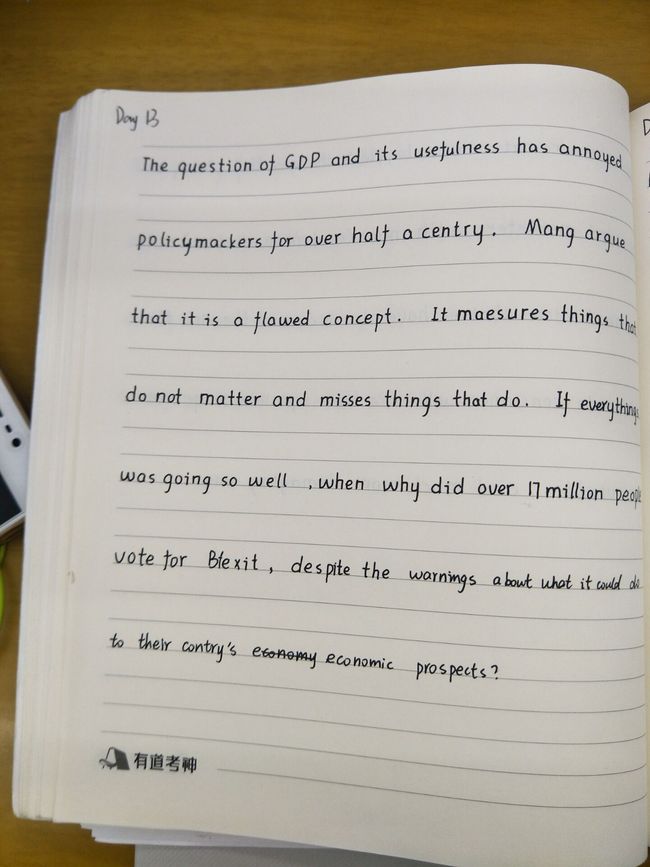 Day 13
The question of GDP and its usefulness has annoyed
policymackers for over half a centry. Mang argue
that it is a flawed concept. It maesures things that
do not matter and misses things that do. If everythings
was going so well , when why did over 17 million people
vote for Btexit, despite the warnings about what it could do
to their contry's economy economic prospects?
有道考神